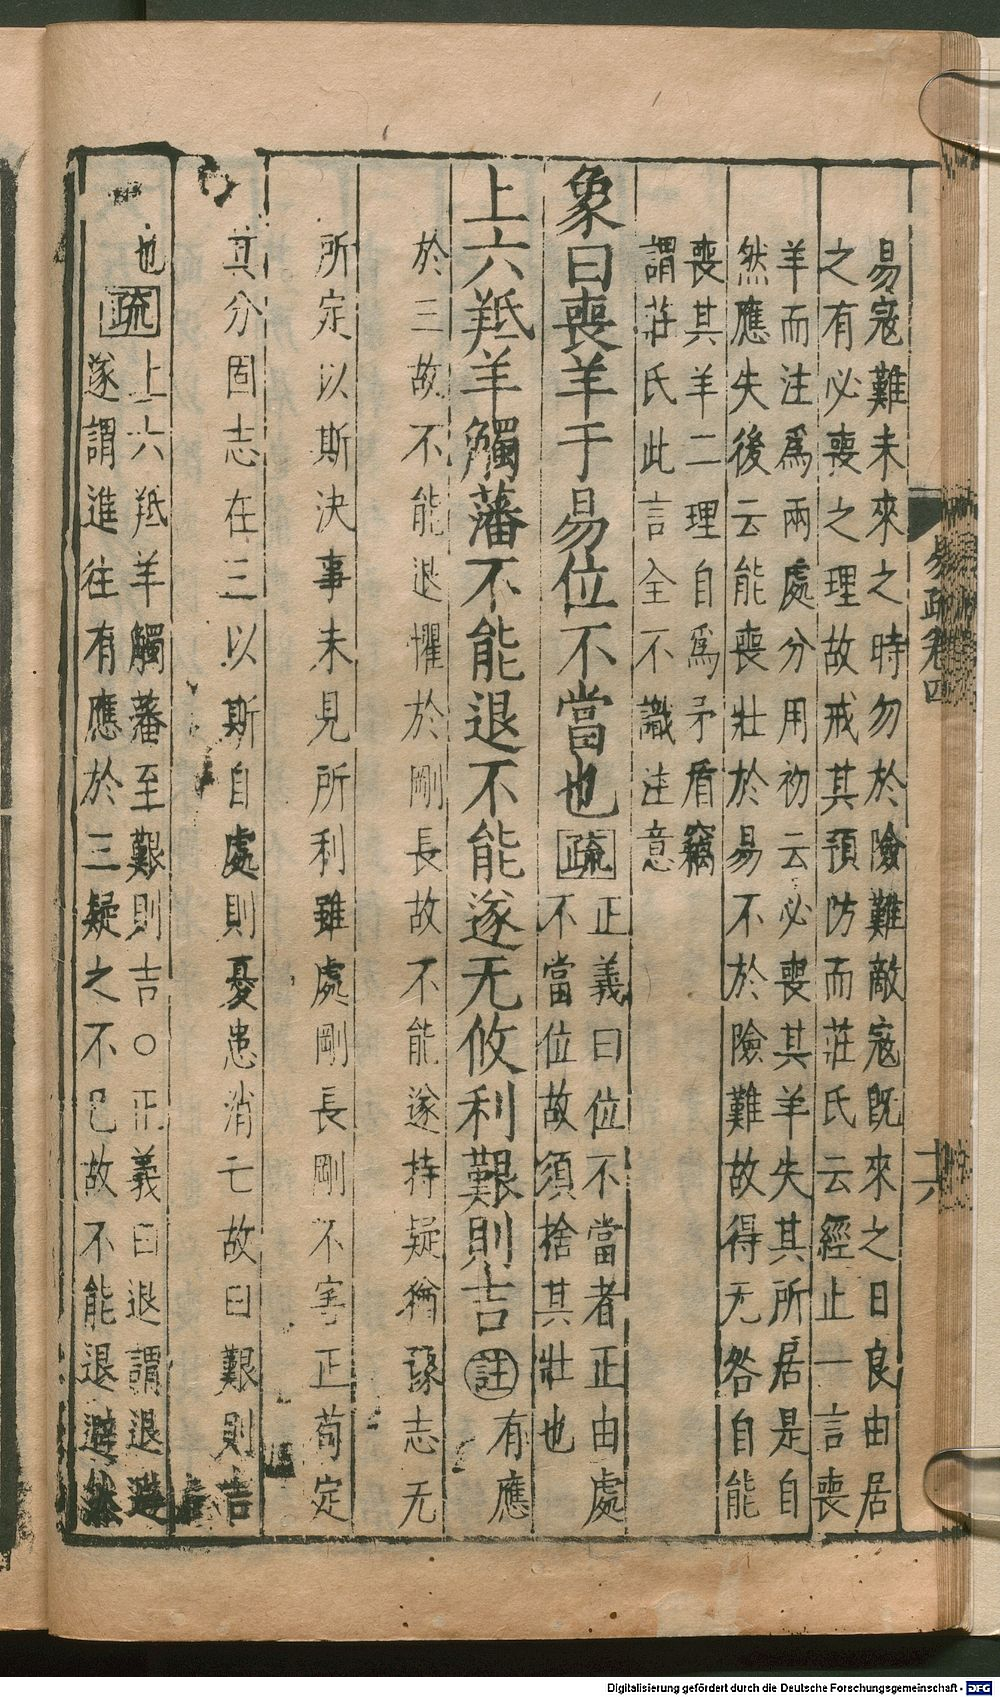 易寇難未來之時勿於險難敵寇旣來之日良由居
之有必喪之理故戒其預防而莊氏云經止一言喪
羊而注爲兩處分用初云必喪其羊失其所居是自
然應失後云能喪壯於易不於險難故得无咎自能
喪其羊二理自爲矛盾竊
謂莊氏此言全不識注意
象曰喪羊于易位不當也疏
正義曰位不當者正由處
不當位故須捨其壯也
上六羝羊觸藩不能退不能遂无攸利艱則吉註有應
於三故不能退懼於剛長故不能遂持疑猶豫志无
所定以斯決事未見所利雖處剛長剛不害正苟定
其分固志在三以斯自處則憂患消亡故曰艱則吉
也疏
上六羝羊觸藩至艱則吉○正義曰退謂退避
遂謂進往有應於三疑之不已故不能退避然
易疏卷四
十六
Digitalisierung gefördert durch die Deutsche Forschungsgemeinschaft - DFG